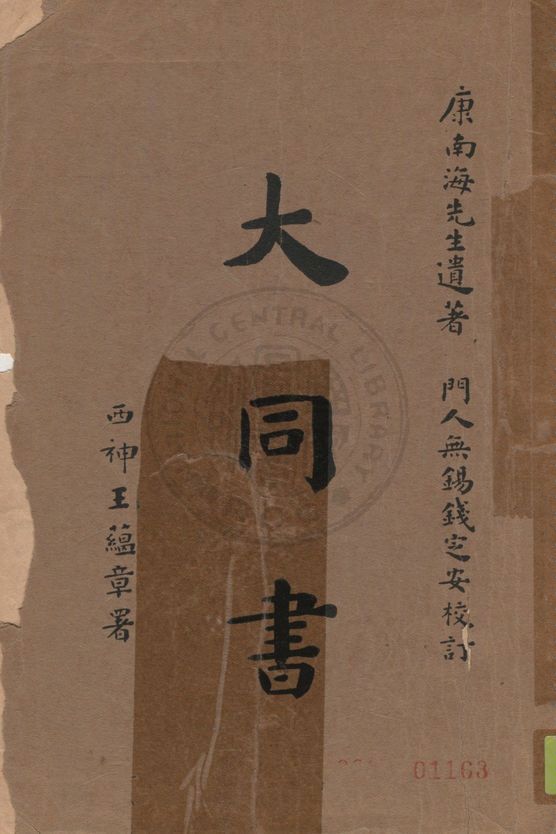 康南海先生遺著 門人無錫錢定安校訂
大同書
西神王蘊章署
CENTRAL LIBRARY
01163